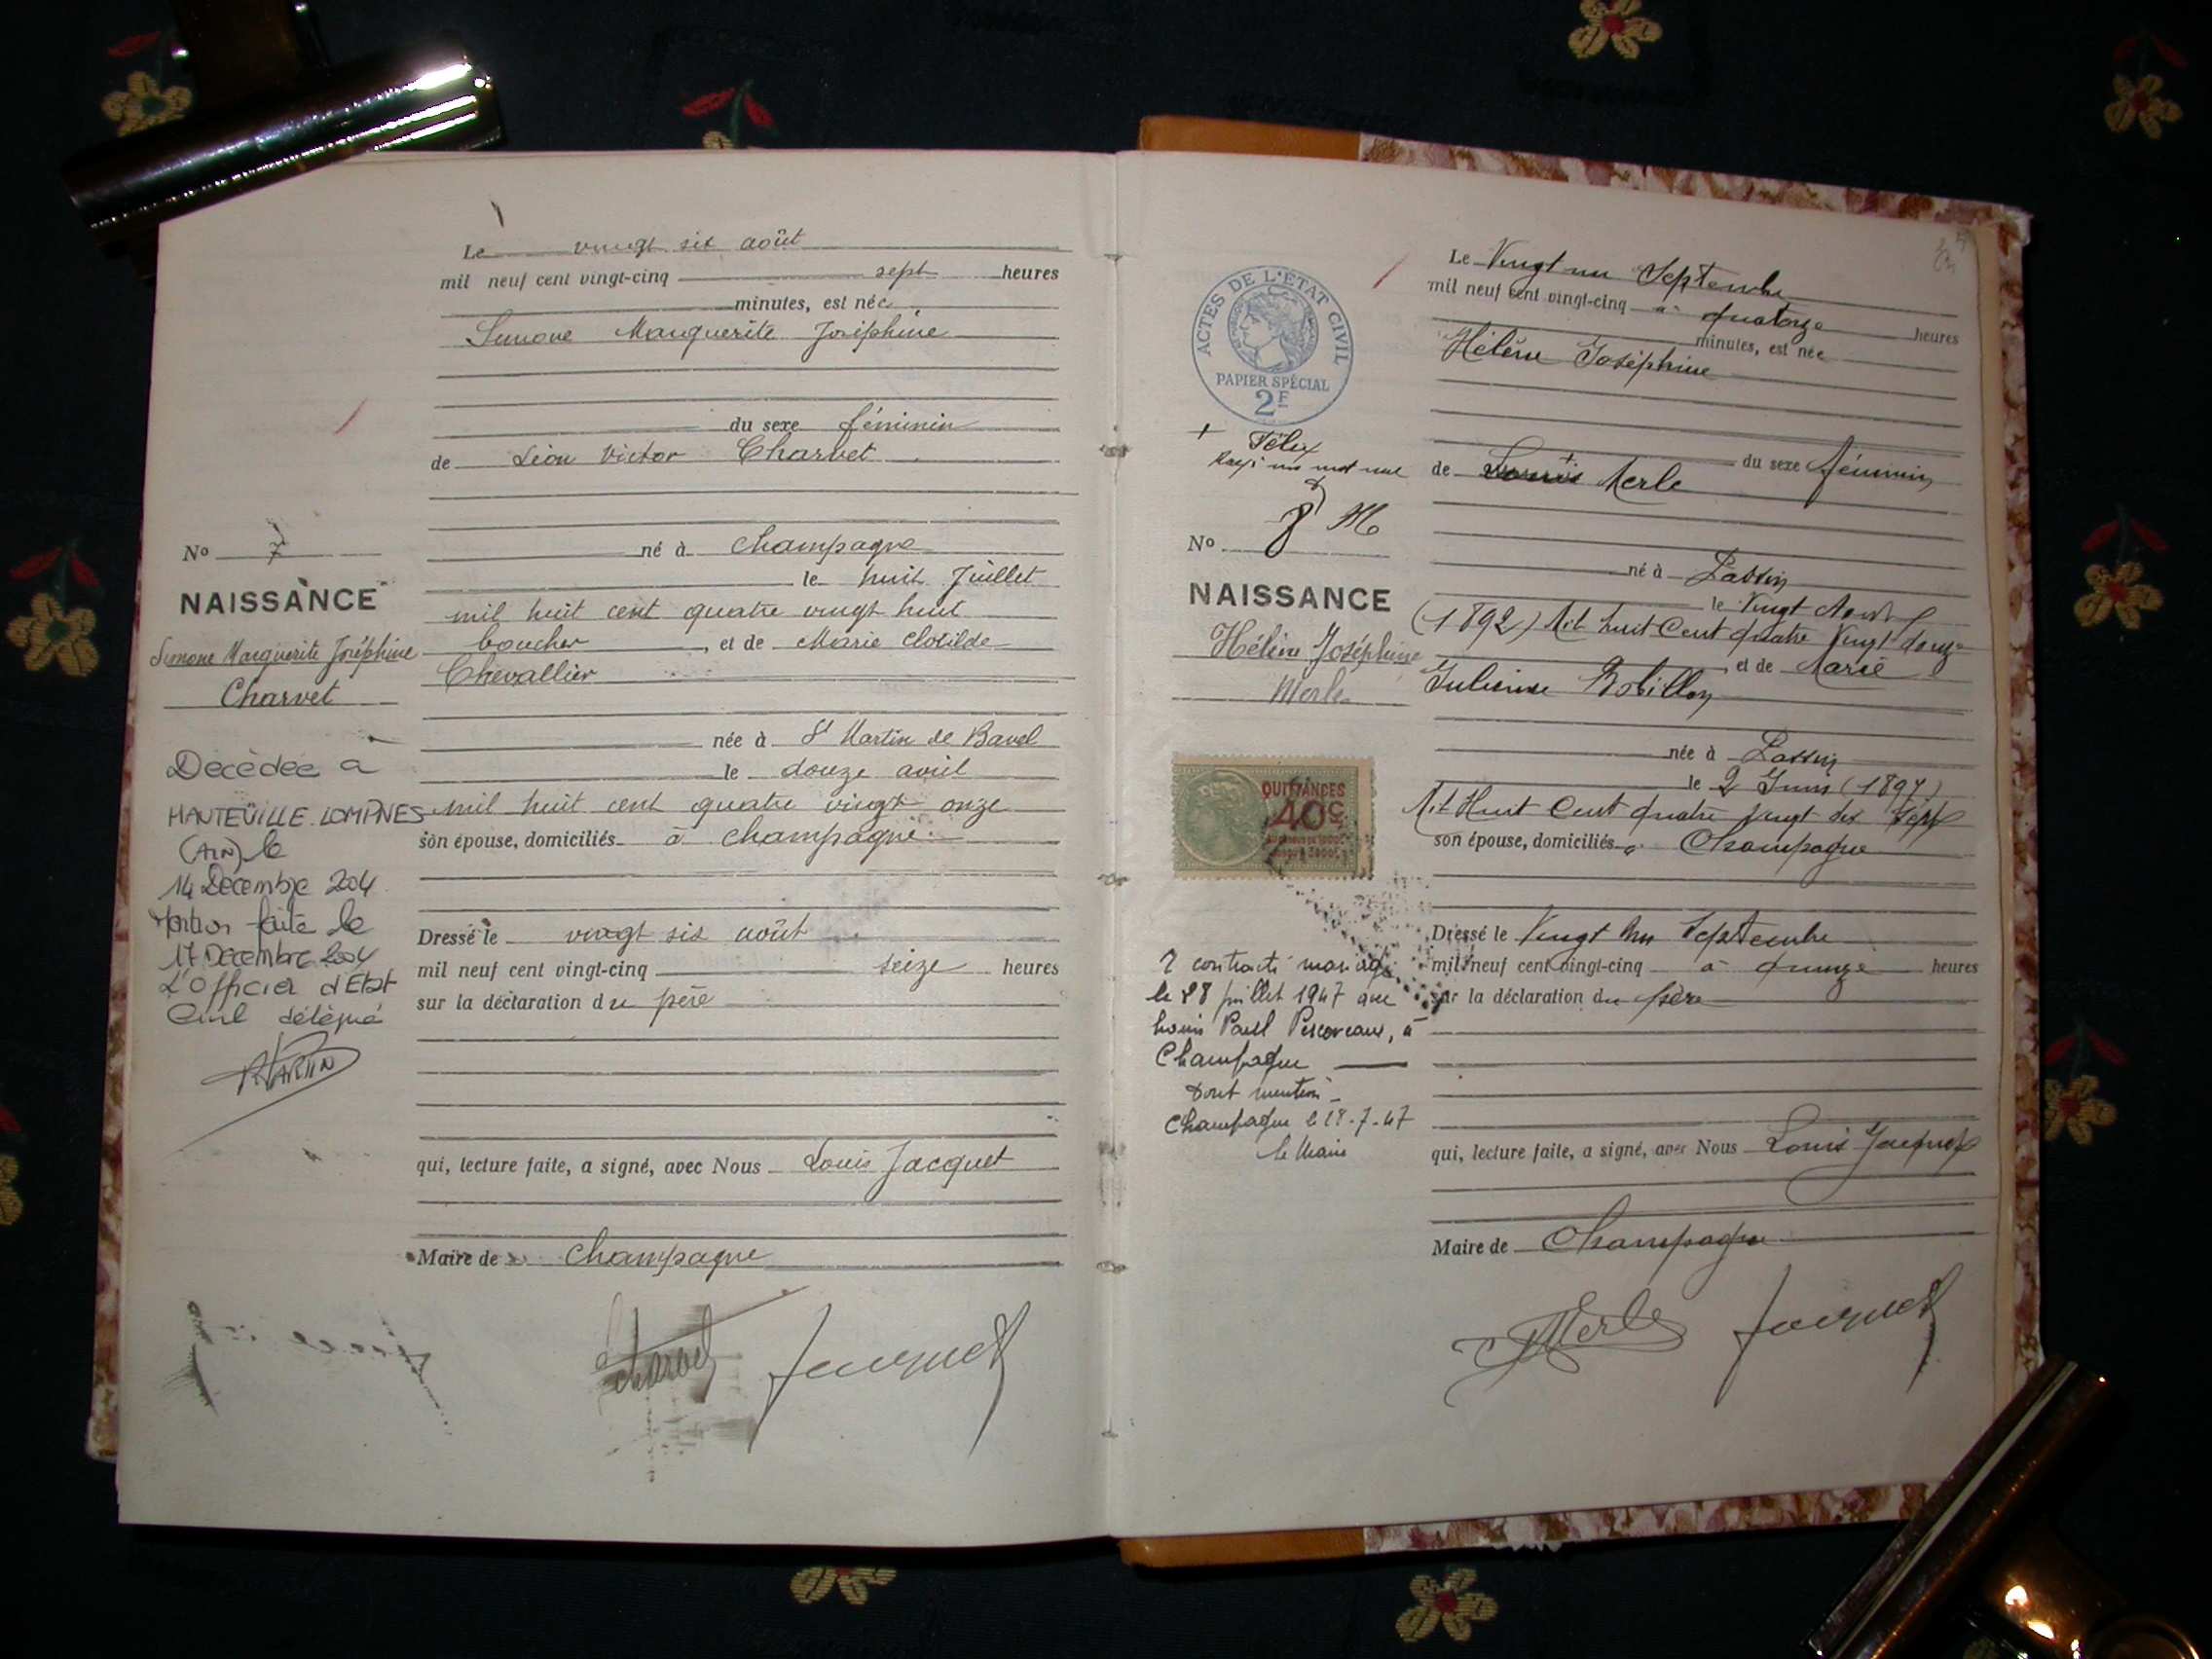 Le vingt six août
mil neuf cent vingt-cinq sept heures
minutes, est née
Simone Marguerite Joséphine
du sexe féminin
de Léon Victor Charvet
No 7
né à Champagne
le huit Juillet
NAISSANCE
mil huit cent quatre vingt huit
Simone Marguerite Joséphine
boucher, et de Marie Clotilde
Charvet
Chevallier
née à St Martin de Bavel
le douze avril
mil huit cent quatre vingt onze
son épouse, domiciliés à Champagne
Décédée à
HAUTEVILLE LOMPNES
(AIN) le
14 Décembre 2004
Mention faite le
17 Décembre 2004
L'Officier d'Etat
Civil délégué
MARTIN
Dressé le vingt six août
mil neuf cent vingt-cinq seize heures
sur la déclaration du père
qui, lecture faite, a signé, avec Nous Louis Jacquet
Maire de Champagne
Charvet Jacquet
Le Vingt un Septembre
mil neuf cent vingt-cinq à quatorze heures
minutes, est née
Hélène Joséphine
ACTES DE L'ETAT CIVIL
PAPIER SPÉCIAL
2F
+ Félix
Rayé un mot nul
du sexe féminin
de Louis + Merle
No 8
né à Lassin
le Vingt Aout
NAISSANCE
(1892) Mil huit Cent quatre Vingt douze
Hélène Joséphine
et de Marie
Merle
Julienne Robillon
née à Lassin
le 2 Juin (1897)
Mil Huit Cent quatre vingt dix Sept
son épouse, domiciliés à Champagne
QUITTANCES
40c
Dressé le Vingt Un Septembre
mil neuf cent vingt-cinq à quinze heures
sur la déclaration du père
A contracté mariage
le 28 juillet 1947 avec
Louis Paul à
Champagne
Dont mention
Champagne le 28-7-47
le Maire
qui, lecture faite, a signé, avec Nous Louis Jacquet
Maire de Champagne
Merle Jacquet